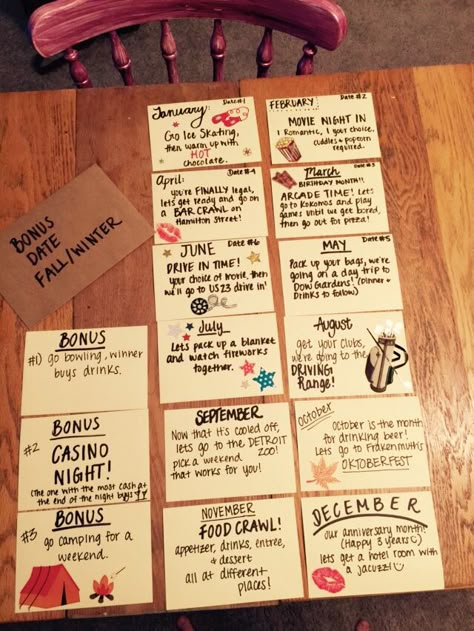 January:
Date #1
Go Ice Skating,
then warm up with
HOT
chocolate.
FEBRUARY:
Date #2
MOVIE NIGHT IN
1 Romantic, 1 your choice,
cuddles & popcorn
required.
April:
Date #4
you're FINALLY legal,
lets get ready and go on
a BAR CRAWL on
Hamilton Street!
March
Date #3
BIRTHDAY MONTH!!
ARCADE TIME! Lets
go to Kokomos and play
games until we get bored,
then go out for pizza!
BONUS
DATE
FALL/WINTER
JUNE
Date #6
DRIVE IN TIME!
your choice of movie, then
we'll go to US 23 drive in!
MAY
Date #5
Pack up your bags, we're
going on a day trip to
Dow Gardens! (Dinner +
Drinks to follow)
July
Lets pack up a blanket
and watch fireworks
together.
August
get your clubs,
we're going to the
DRIVING
Range!
BONUS
#1) go bowling, winner
buys drinks.
BONUS
#2
CASINO
NIGHT!
(The one with the most cash at
the end of the night buys)
SEPTEMBER
Now that it's cooled off,
lets go to the DETROIT
ZOO!
pick a weekend
that works for you!
October
October is the month
for drinking beer!
Lets go to Frakenmuth's
OKTOBERFEST
BONUS
#3 go camping for a
weekend.
NOVEMBER
FOOD CRAWL!
appetizer, drinks, entree,
& dessert
all at different
places!
DECEMBER
our anniversary month!
(Happy 3 years)
lets get a hotel room with
a jacuzzi